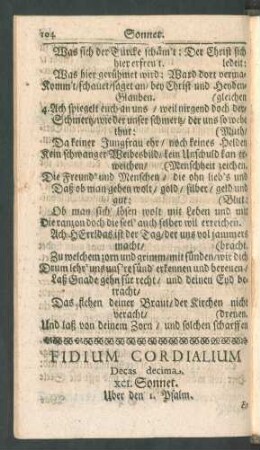 104 Sonnet.
Was sich der Türcke schäm't: Der Christ sich
hier erfreu't. ledeit:
Was hier gerühmet wird: Ward dort verma-
Komm't / schauet / saget an / bey Christ und Heyden-
Glauben. (gleichen
4. Ach spiegelt euch an uns / weil nirgend doch dey
Schmertz / wie der unser schmertz / der uns so wehe
thut: (Muth /
Da keiner Jungfrau ehr / noch keines Helden
Kein schwanger Weibesbild / kein Unschuld kan er-
weichen / (Menschheit zeichen.
Die Freund und Menschen / die ohn lieb's und
Daß ob man geben wolt / gold / silber / geld und
gut: (Blut:
Ob man sich lösen wolt mit Leben und mit
Die ranzon doch die seel' auch selber will erreichen.
Ach HErr das ist der Tag / der uns vol jammert
macht / (bracht.
Zu welchem zorn und grimm / mit sünden / wir dich
Drum lehr' uns uns're sünd' erkennen und bereuen /
Laß Gnade gehn für recht / und deinen Eyd be-
tracht /
Das flehen deiner Braut / der Kirchen nicht
veracht / (dreuen.
Und laß von deinem Zorn / und solchen scharffen
FIDIUM CORDIALIUM
Decas decima.
XCI. Sonnet.
Uber den 1. Psalm.